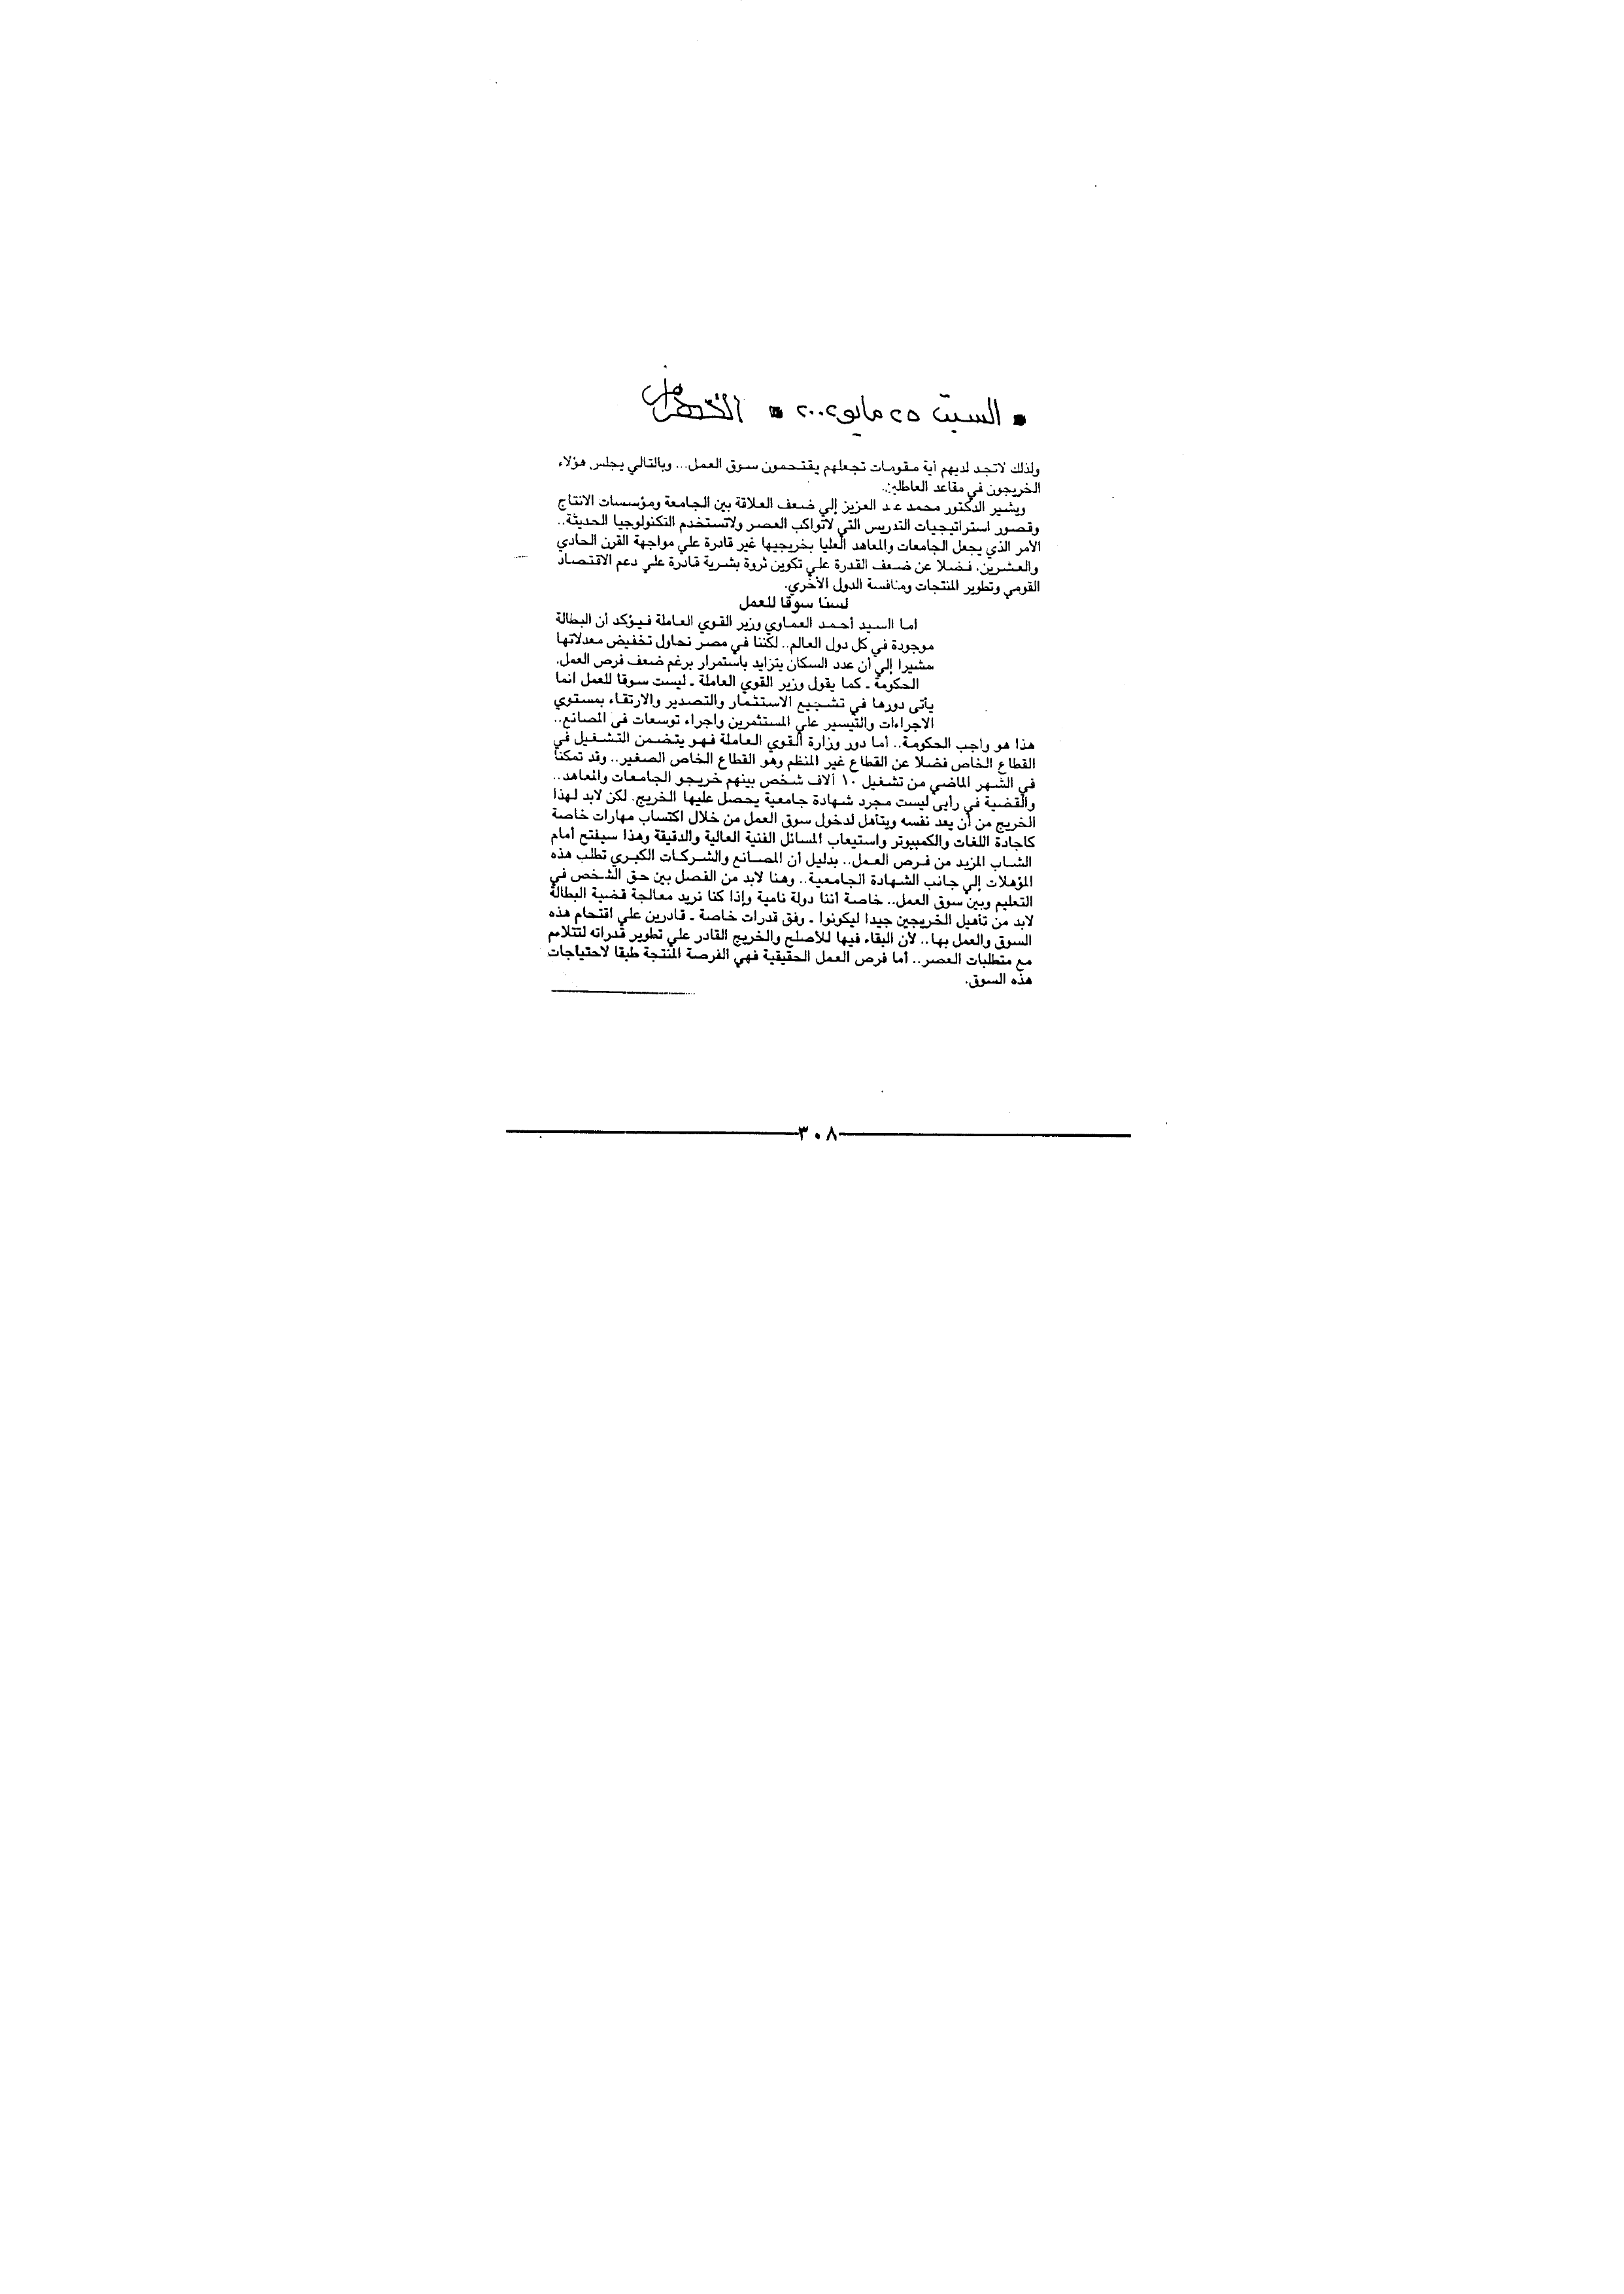 ▪ السبت ٢٥ مايو ٢٠٠٢ ▪ الأهرام
ولذلك لاتجد لديهم أية مقومات تجعلهم يقتحمون سوق العمل... وبالتالي يجلس هؤلاء
الخريجون في مقاعد
ويشير الدكتور محمد عبد العزيز إلي ضعف العلاقة بين الجامعة ومؤسسات الانتاج
وقصور استراتيجيات التدريس التي لاتواكب العصر ولاتستخدم التكنولوجيا الحديثة..
الأمر الذي يجعل الجامعات والمعاهد العليا بخريجيها غير قادرة علي مواجهة القرن الحادي
والعشرين. فضلا عن ضعف القدرة علي تكوين ثروة بشرية قادرة علي دعم الاقتصاد
القومي وتطوير المنتجات ومنافسة الدول الأخري.
لسنا سوقا للعمل
اما السيد أحمد العماوي وزير القوي العاملة فيؤكد أن البطالة
موجودة في كل دول العالم.. لكننا في مصر نحاول تخفيض معدلاتها
مشيرا إلي أن عدد السكان يتزايد باستمرار برغم ضعف فرص العمل.
الحكومة ـ كما يقول وزير القوي العاملة ـ ليست سوقا للعمل انما
يأتى دورها في تشجيع الاستثمار والتصدير والارتقاء بمستوي
الاجراءات والتيسير علي المستثمرين واجراء توسعات فى المصانع..
هذا هو واجب الحكومة.. أما دور وزارة القوي العاملة فهو يتضمن التشغيل في
القطاع الخاص فضلا عن القطاع غير المنظم وهو القطاع الخاص الصغير.. وقد تمكنا
في الشهر الماضي من تشغيل ١٠ آلاف شخص بينهم خريجو الجامعات والمعاهد..
والقضية في رأيى ليست مجرد شهادة جامعية يحصل عليها الخريج. لكن لابد لهذا
الخريج من أن يعد نفسه ويتأهل لدخول سوق العمل من خلال اكتساب مهارات خاصة
كاجادة اللغات والكمبيوتر واستيعاب المسائل الفنية العالية والدقيقة وهذا سيفتح أمام
الشباب المزيد من فرص العمل.. بدليل أن المصانع والشركات الكبري تطلب هذه
المؤهلات إلي جانب الشهادة الجامعية.. وهنا لابد من الفصل بين حق الشخص في
التعليم وبين سوق العمل.. خاصة أننا دولة نامية وإذا كنا نريد معالجة قضية البطالة
لابد من تأهيل الخريجين جيدا ليكونوا ـ وفق قدرات خاصة ـ قادرين علي اقتحام هذه
السوق والعمل بها.. لأن البقاء فيها للأصلح والخريج القادر علي تطوير قدراته لتتلاءم
مع متطلبات العصر.. أما فرص العمل الحقيقية فهي الفرصة المنتجة طبقا لاحتياجات
هذه السوق.
٣٠٨